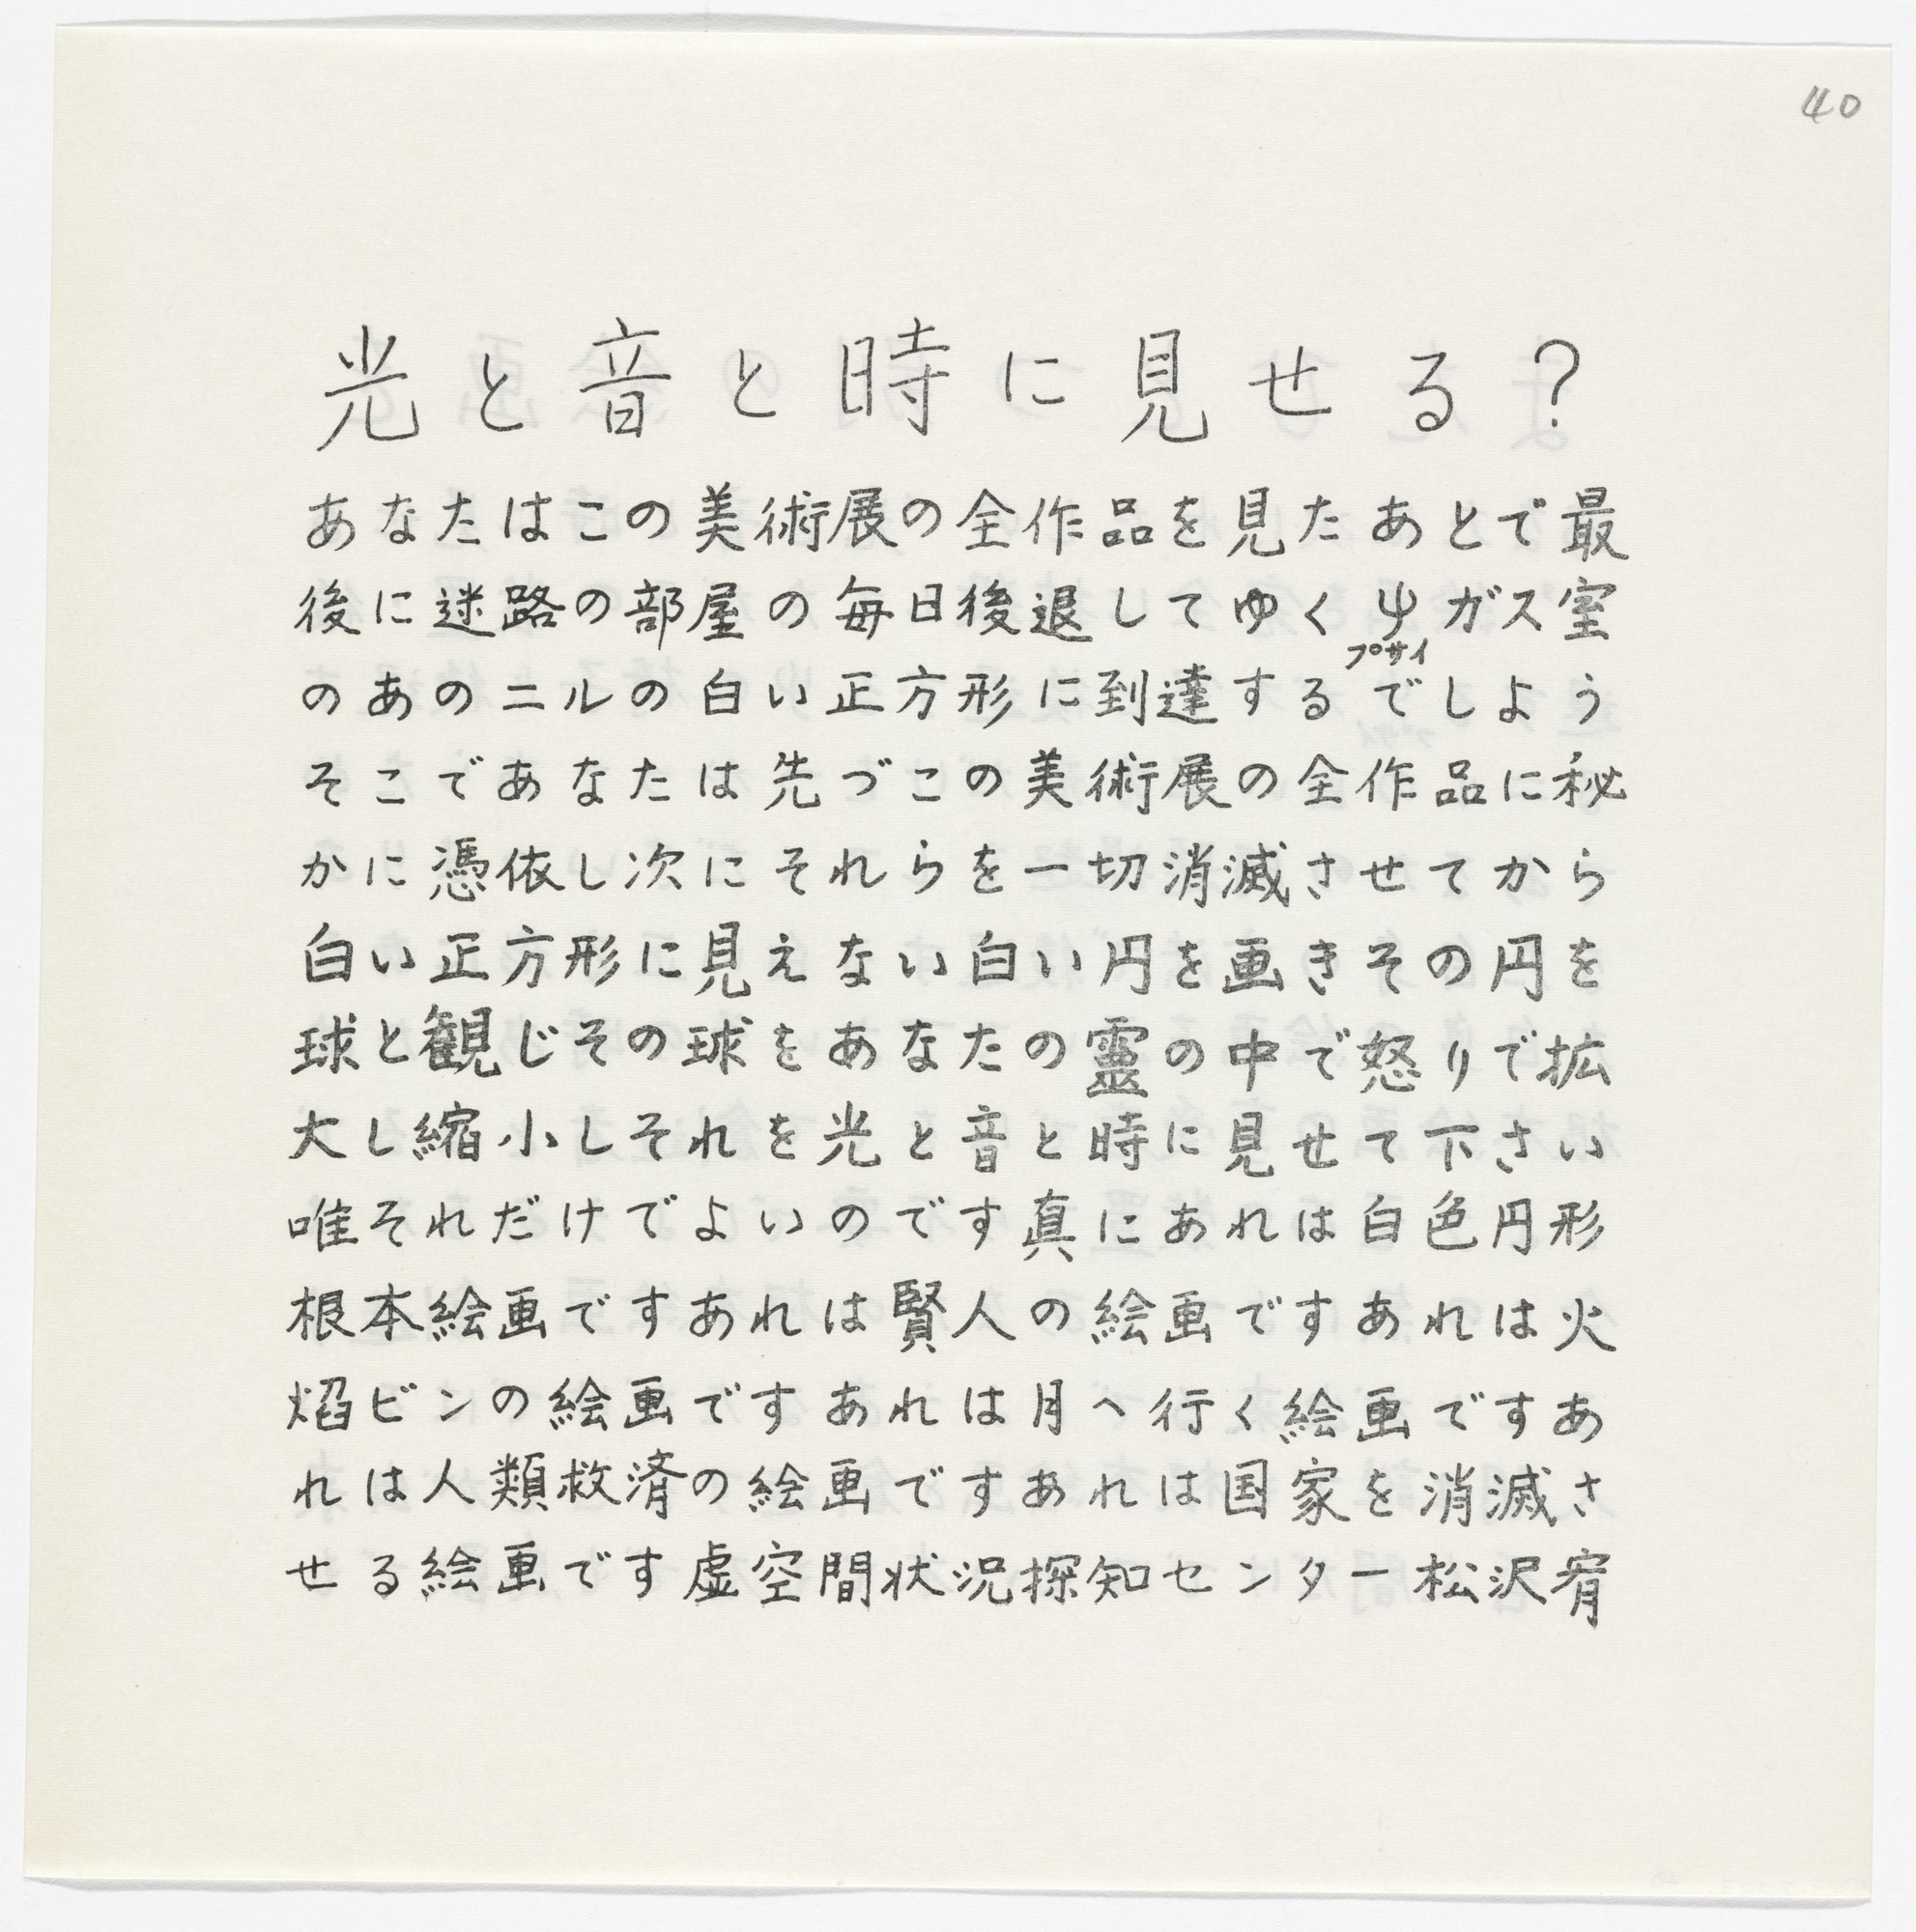 40
光と音と時に見せる?
あなたはこの美術展の全作品を見たあとで最
後に迷路の部屋の毎日後退してゆくψガス室
プサイ
のあのニルの白い正方形に到達するでしよう
そこであなたは先づこの美術展の全作品に秘
かに憑依し次にそれらを一切消滅させてから
白い正方形に見えない白い円を画きその円を
球と観じその球をあなたの靈の中で怒りで拡
大し縮小しそれを光と音と時に見せて下さい
唯それだけでよいのです真にあれは白色円形
根本絵画ですあれは賢人の絵画ですあれは火
焰ビンの絵画ですあれは月へ行く絵画ですあ
れは人類救済の絵画ですあれは国家を消滅さ
せる絵画です虚空間状況探知センター松沢宥